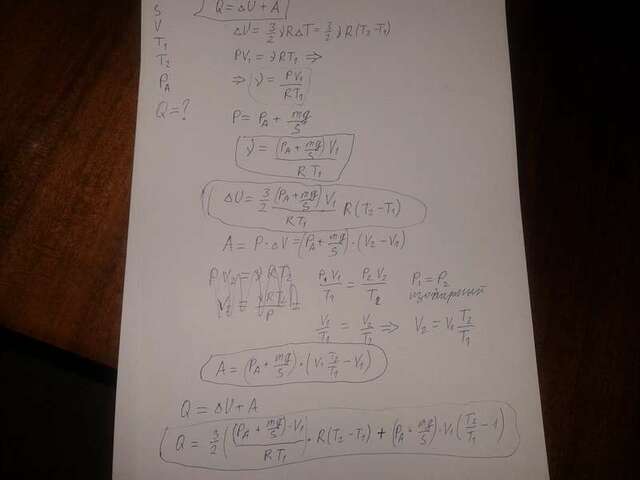 S
V
T₁
T₂
P_A
Q=?
Q = ΔU + A
ΔU = 3/2 νRΔT = 3/2 νR(T₂-T₁)
PV₁ = νRT₁ ⇒
⇒ ν = PV₁/RT₁
P = P_A + mg/S
ν = (P_A + mg/S)V₁/RT₁
ΔU = 3/2 (P_A + mg/S)V₁/RT₁ R(T₂-T₁)
A = P·ΔV = (P_A + mg/S)·(V₂-V₁)
PV₂ = νRT₂
P₁V₁/T₁ = P₂V₂/T₂
P₁ = P₂
изобарный
V₁/T₁ = V₂/T₂ ⇒ V₂ = V₁ T₂/T₁
A = (P_A + mg/S)·(V₁ T₂/T₁ - V₁)
Q = ΔU + A
Q = 3/2 ((P_A + mg/S)·V₁/RT₁)·R(T₂-T₁) + (P_A + mg/S)·V₁(T₂/T₁ - 1)